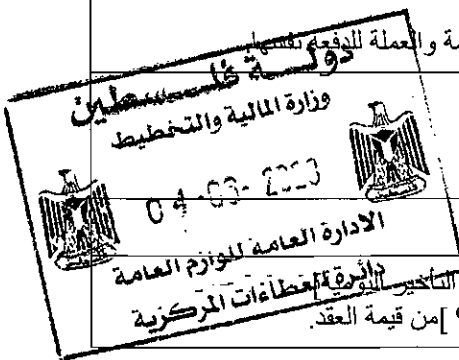 ة والعملة للدفعة نفسها.
دولــة فلــسطين
وزارة المالية والتخطيط
فلسطين
فلسطين
04-03-
الادارة العامة للوازم العامة
دائرة العطاءات المركزية
التأخير اليومية]
] من قيمة العقد.